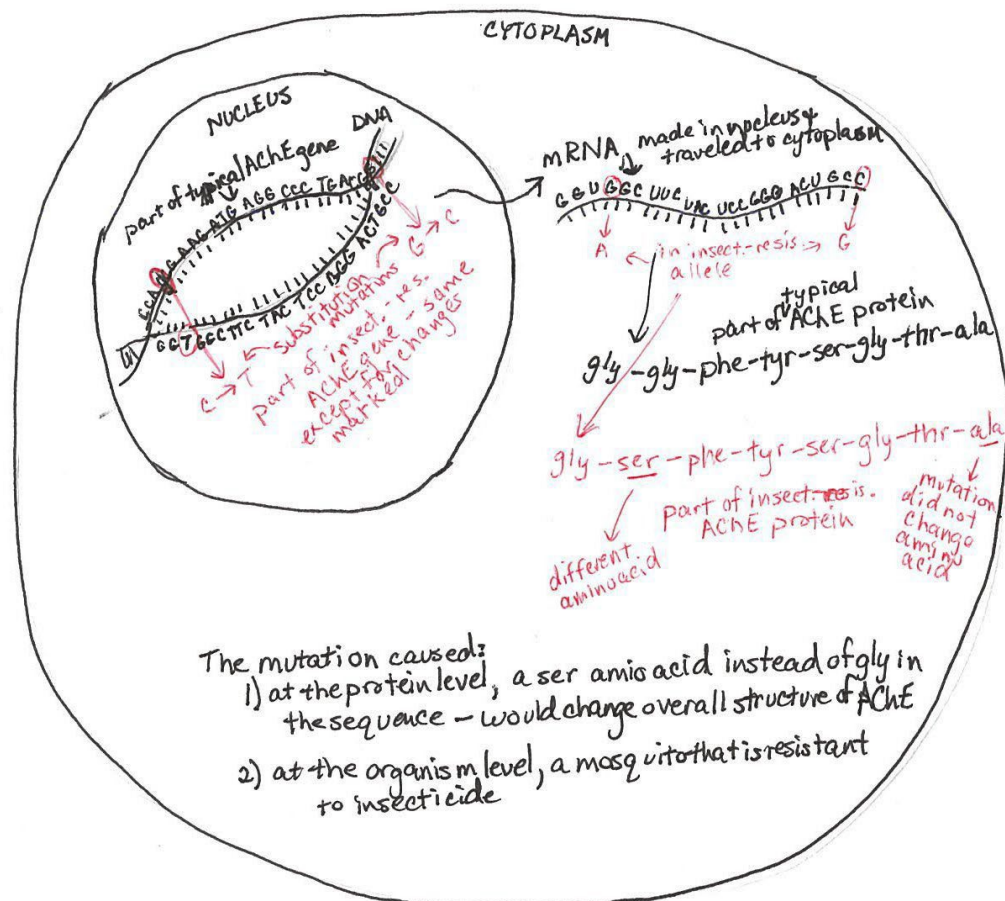 CYTOPLASM
NUCLEUS
DNA
part of typical AChE gene
AAG ATG AGG CCC TGA CG
GGT GGC TTC TAC TCC GGG ACT GCC
C → T
G → C
substitution
mutations
part of insect.-res.
AChE gene - same
except for changes
marked
mRNA, made in nucleus &
traveled to cytoplasm
GGU GGC UUC UAC UCC GGG ACU GCC
A ← in insect.-resis → G
allele
typical
part of AChE protein
gly-gly-phe-tyr-ser-gly-thr-ala
gly-ser-phe-tyr-ser-gly-thr-ala
part of insect.-resis.
AChE protein
different
amino acid
mutation
did not
change
amino
acid
The mutation caused:
1) at the protein level, a ser amio acid instead of gly in
the sequence - would change overall structure of AChE
2) at the organism level, a mosquito that is resistant
to insecticide